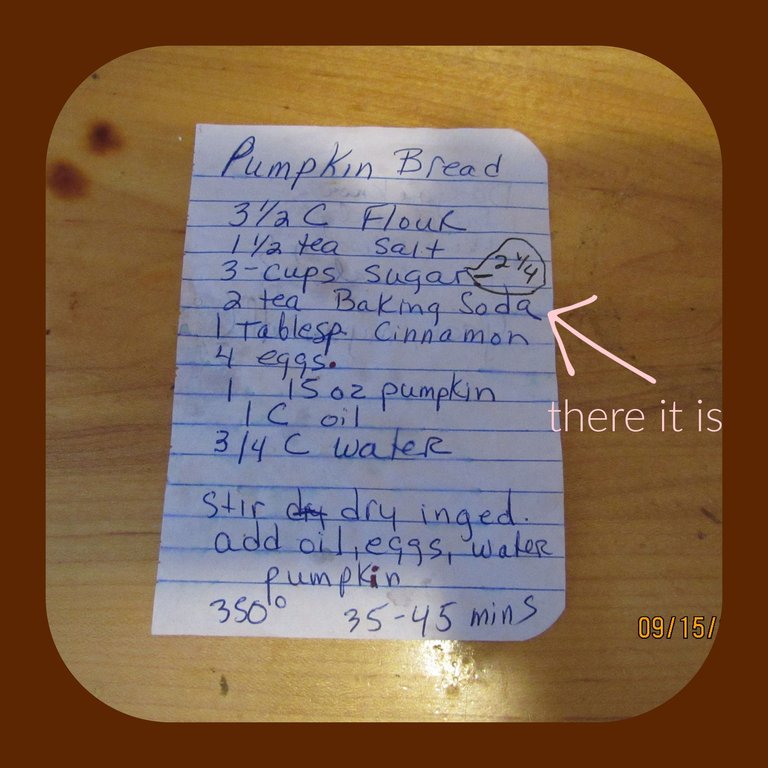 Pumpkin Bread
3 1/2 C Flour
1 1/2 tea Salt
3-cups sugar - 2 1/4
2 tea Baking Soda
1 Tablesp Cinnamon
4 eggs.
1 15 oz pumpkin
1 C oil
3/4 C water
there it is
Stir dry inged.
add oil, eggs, water
pumpkin
350° 35-45 mins
09/15/